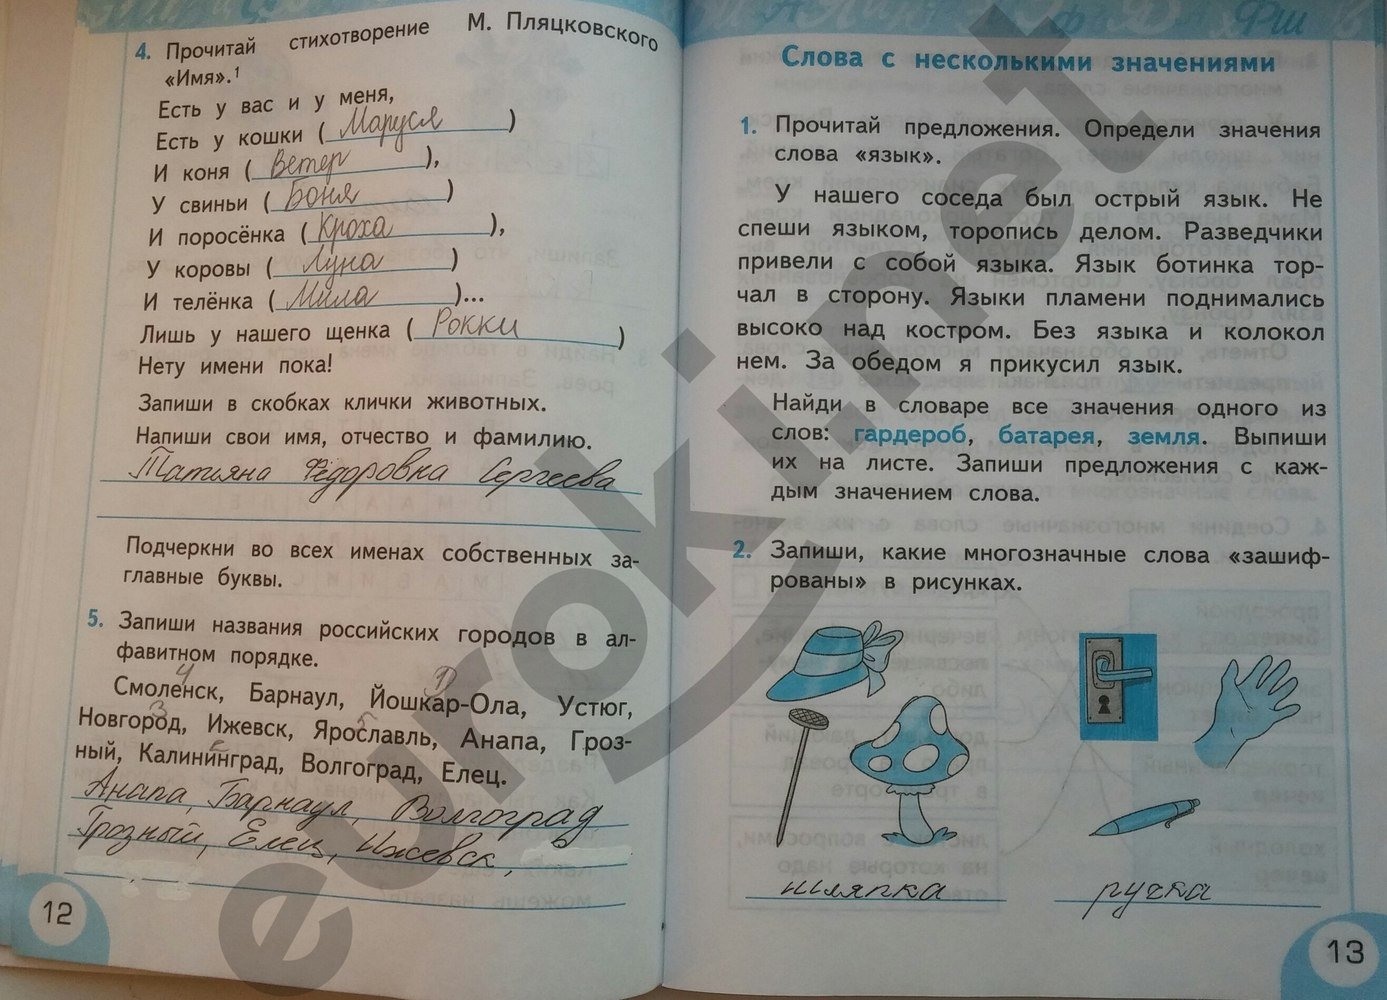 4. Прочитай стихотворение М. Пляцковского
«Имя».¹
Есть у вас и у меня,
Есть у кошки ( Маруся )
И коня ( Ветер ),
У свиньи ( Боня )
И поросёнка ( Кроха ),
У коровы ( Луна )
И телёнка ( Мила )...
Лишь у нашего щенка ( Рокки )
Нету имени пока!
Запиши в скобках клички животных.
Напиши свои имя, отчество и фамилию.
Татьяна Фёдоровна Сергеева
Подчеркни во всех именах собственных за-
главные буквы.
5. Запиши названия российских городов в ал-
фавитном порядке.
4
Смоленск, Барнаул, Йошкар-Ола, Устюг,
3 5
Новгород, Ижевск, Ярославль, Анапа, Гроз-
ный, Калининград, Волгоград, Елец.
Анапа, Барнаул, Волгоград
Грозный, Елец, Ижевск,
12
Слова с несколькими значениями
1. Прочитай предложения. Определи значения
слова «язык».
У нашего соседа был острый язык. Не
спеши языком, торопись делом. Разведчики
привели с собой языка. Язык ботинка тор-
чал в сторону. Языки пламени поднимались
высоко над костром. Без языка и колокол
нем. За обедом я прикусил язык.
Найди в словаре все значения одного из
слов: гардероб, батарея, земля. Выпиши
их на листе. Запиши предложения с каж-
дым значением слова.
2. Запиши, какие многозначные слова «зашиф-
рованы» в рисунках.
шляпка ручка
13
euroki.net